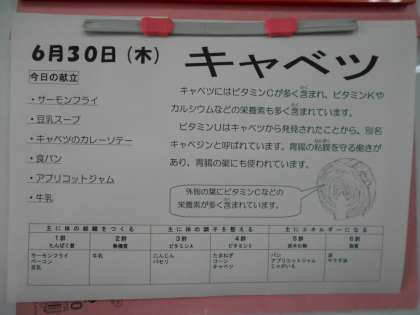 6月30日（木）
キャベツ
今日の献立
・サーモンフライ
・豆乳スープ
・キャベツのカレーソテー
・食パン
・アプリコットジャム
・牛乳
キャベツにはビタミンCが多く含まれ、ビタミンKや
カルシウムなどの栄養素も多く含まれています。
ビタミンUはキャベツから発見されたことから、別名
キャベジンと呼ばれています。胃腸の粘膜を守る働きが
あり、胃腸の薬にも使われています。
外側の葉にビタミンCなどの
栄養素が多く含まれています。
主に体の組織をつくる 主に体の調子を整える 主にエネルギーになる
1群 2群 3群 4群 5群 6群
たんぱく質 無機質 ビタミンA ビタミンC 炭水化物 脂質
サーモンフライ 牛乳 にんじん たまねぎ パン 油
ベーコン パセリ コーン アプリコットジャム サラダ油
豆乳 キャベツ じゃがいも